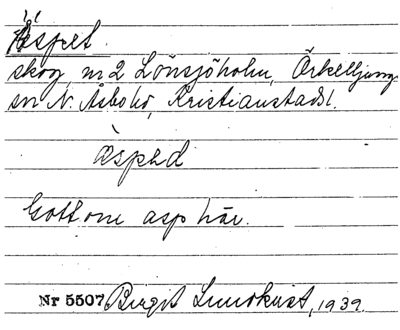 Äspet
skog, m 2 Lönsjöholm, Örkelljunga
sn N. Åsbo hd, Kristianstads l.
æspəd
Gott om asp här.
Nr 5507 Birgit Lundkvist, 1939.